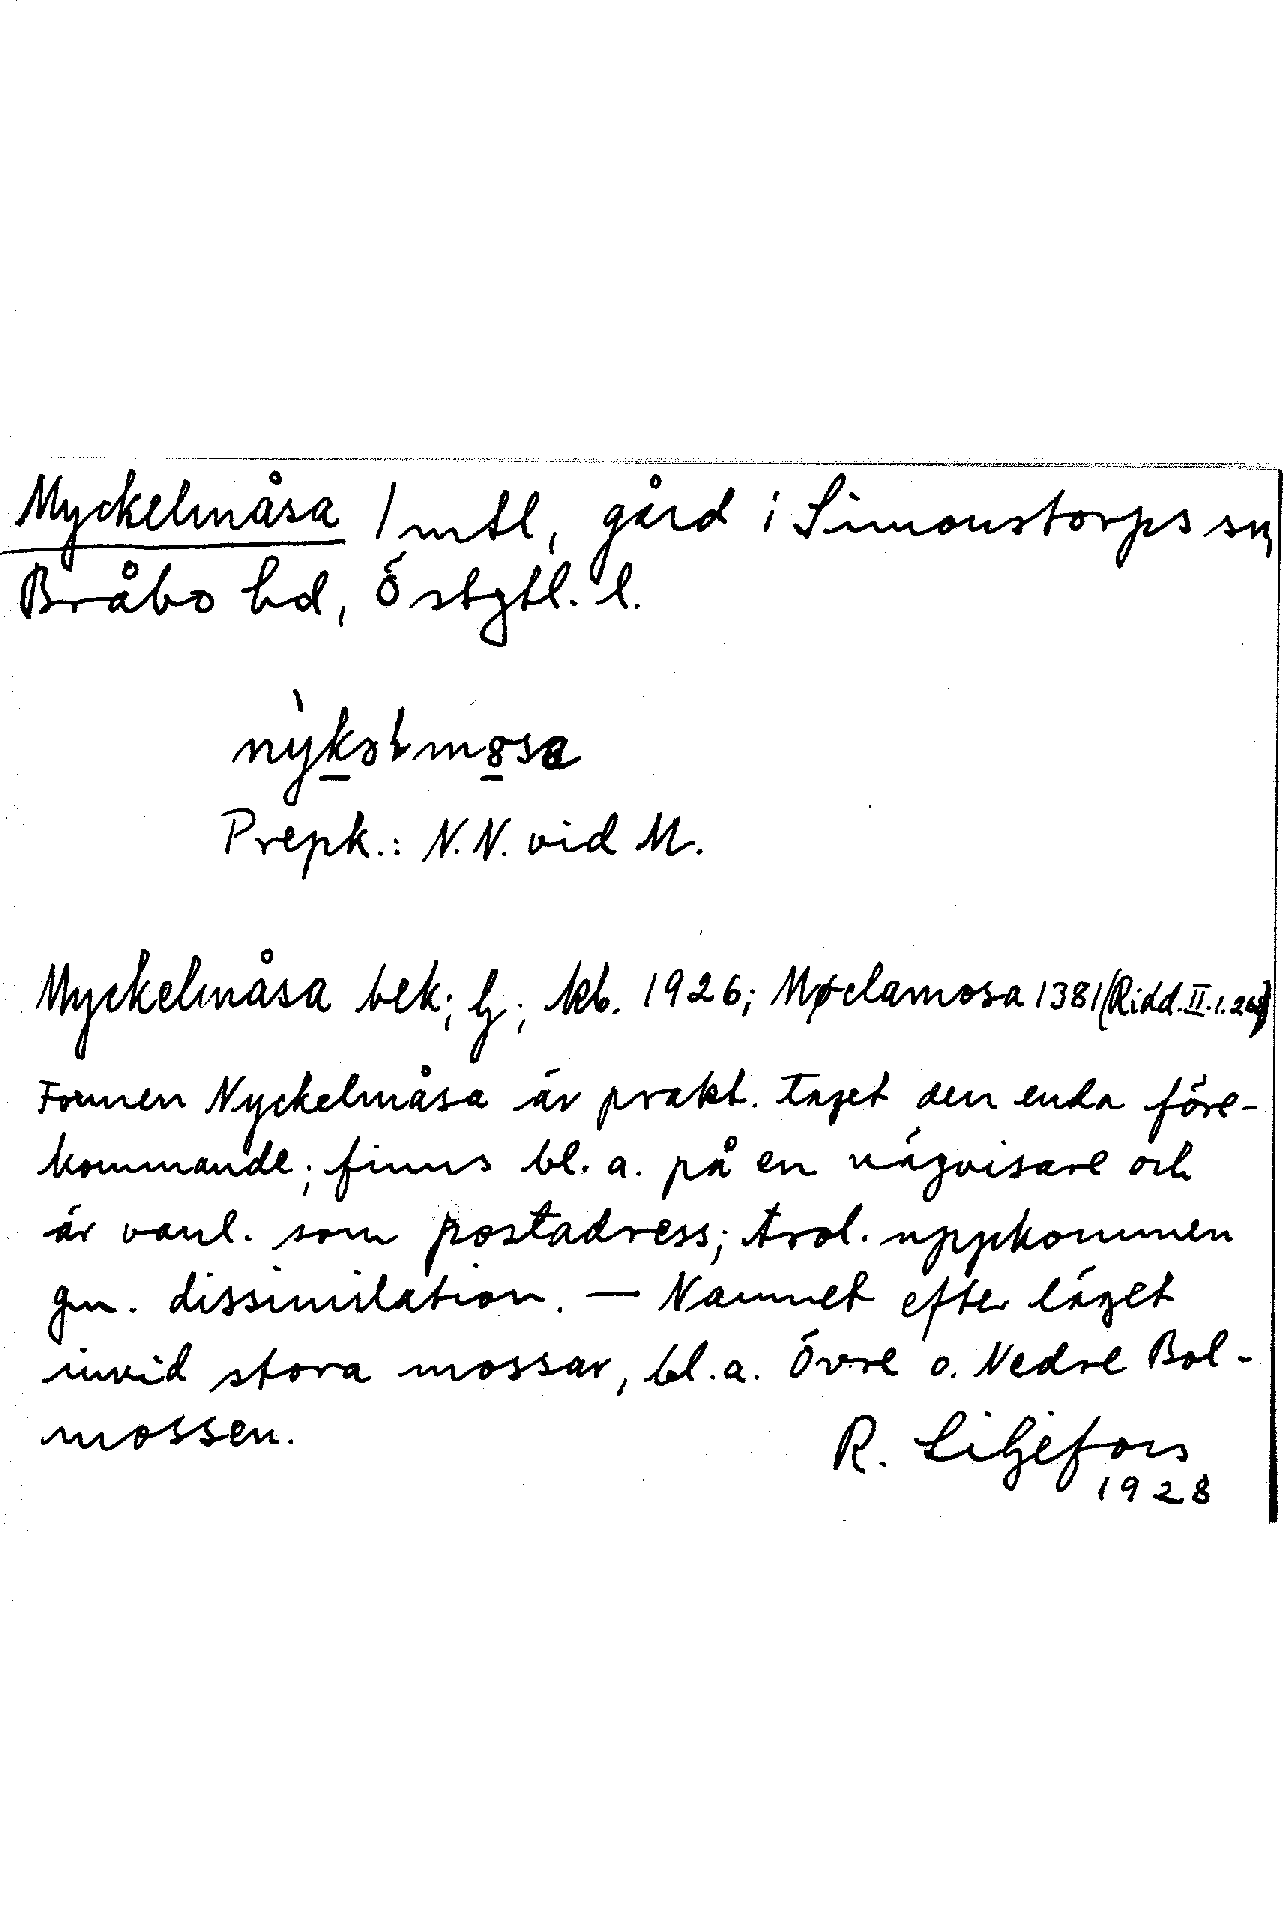 Myckelmåsa 1 mtl, gård i Simonstorps sn,
Bråbo hd, Östgtl. l.
Prepk.: N.N. vid M.
Myckelmåsa bek; lj; kb. 1926; Møclamosa 1381 (Ridd. II.1.
Formen Nyckelmåsa är prakt. taget den enda före-
kommande; finns bl. a. på en vägvisare och
är vanl. som postadress; trol. uppkommen
gm. dissimilation. — Namnet efter läget
invid stora mossar, bl.a. Övre o. Nedre Bol-
mossen.
R. Liljefors
1928